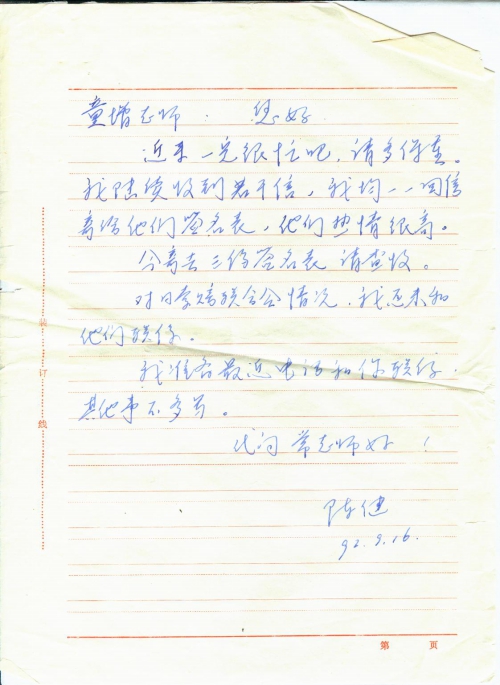 童增老师：您好
近来一定很忙吧，请多保重。
我陆续收到若干信，我均一一回信
寄给他们签名表，他们热情很高。
今寄去三份签名表 请查收。
对日索赔联合会情况，我还未和
他们联系。
我准备最近电话和你联系，
其他事不多写。
代问 常老师好！
陈健
92.9.16.
装
订
线
第 页